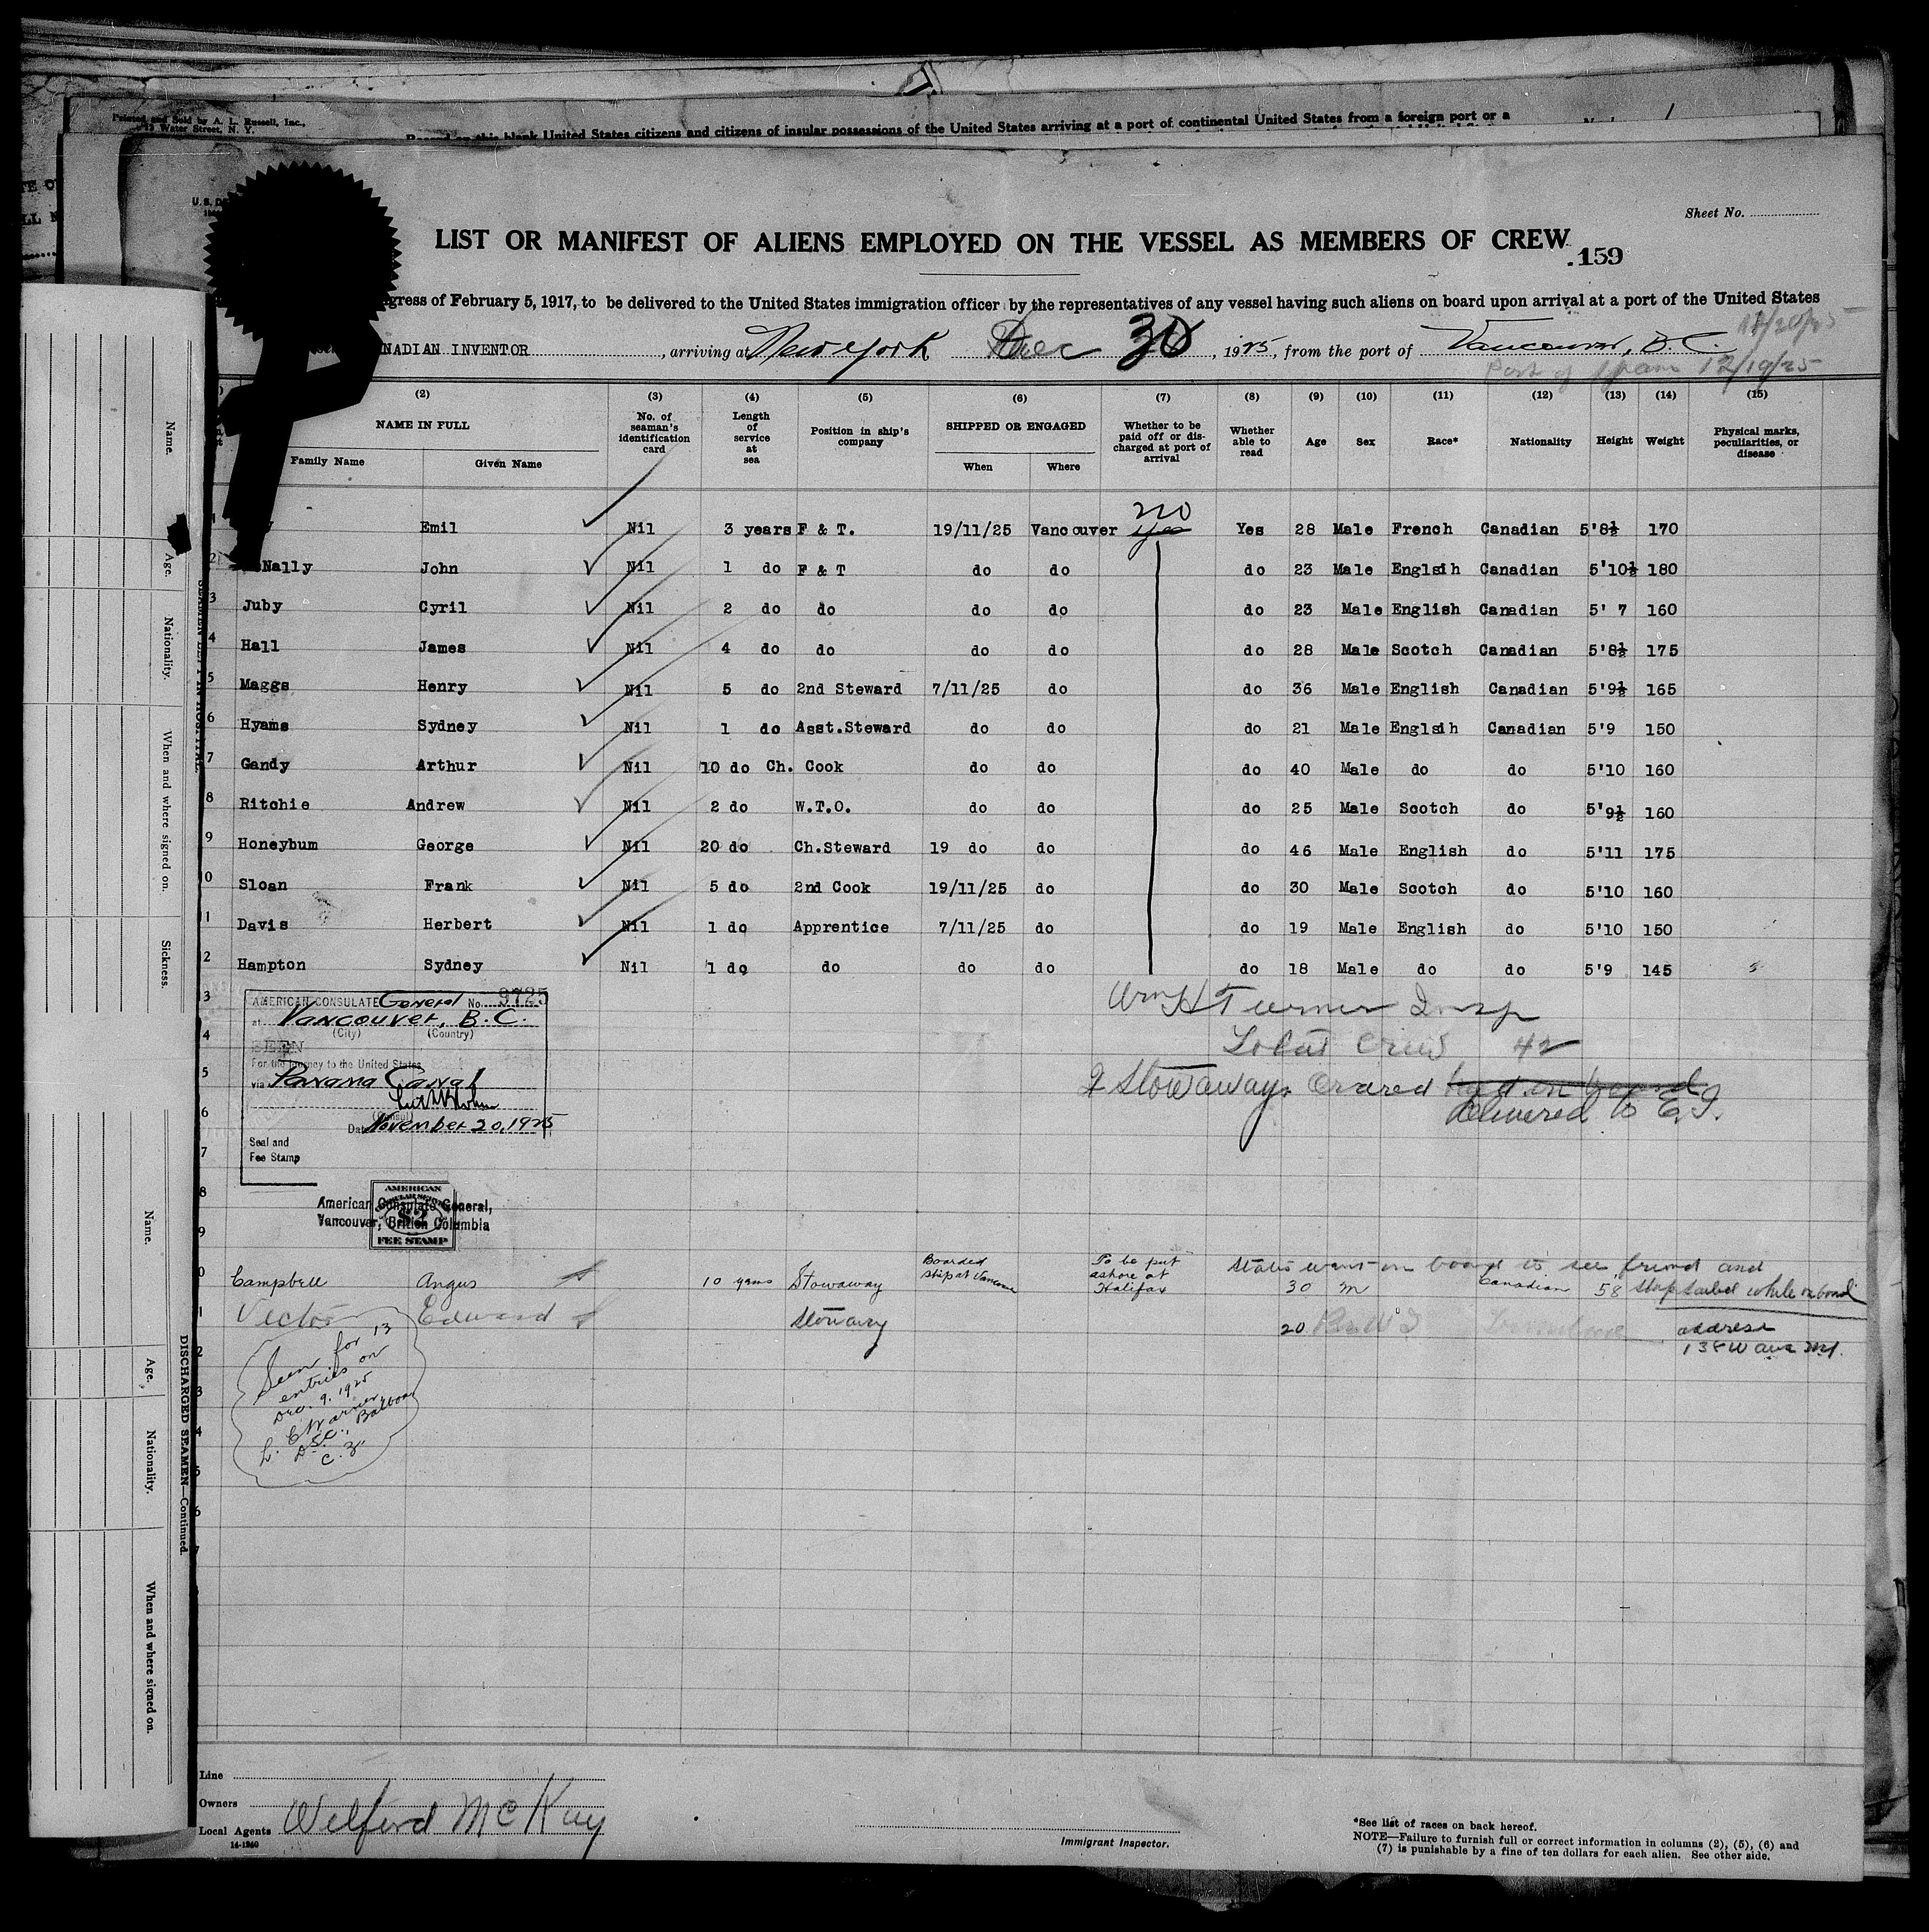 Printed and Sold by A. L. Russell, Inc.,
Water Street, N. Y.
this blank United States citizens and citizens of insular possessions of the United States arriving at a port of continental United States from a foreign port or a
Sheet No.
LIST OR MANIFEST OF ALIENS EMPLOYED ON THE VESSEL AS MEMBERS OF CREW
159
gress of February 5, 1917, to be delivered to the United States immigration officer by the representatives of any vessel having such aliens on board upon arrival at a port of the United States
NADIAN INVENTOR, arriving at New York Dec 30, 1925, from the port of Vancouver, B.C.
Port of Spain 12/19/25
(2) (3) (4) (5) (6) (7) (8) (9) (10) (11) (12) (13) (14) (15)
NAME IN FULL No. of seaman's identification card Length of service at sea Position in ship's company SHIPPED OR ENGAGED Whether to be paid off or discharged at port of arrival Whether able to read Age Sex Race* Nationality Height Weight Physical marks, peculiarities, or disease
Family Name Given Name When Where
no
Emil Nil 3 years F & T. 19/11/25 Vancouver yes Yes 28 Male French Canadian 5'8½ 170
Nally John Nil 1 do F & T do do do 23 Male Englsih Canadian 5'10½ 180
3 Juby Cyril Nil 2 do do do do do 23 Male English Canadian 5' 7 160
4 Hall James Nil 4 do do do do do 28 Male Scotch Canadian 5'8½ 175
5 Maggs Henry Nil 5 do 2nd Steward 7/11/25 do do 36 Male English Canadian 5'9½ 165
6 Hyams Sydney Nil 1 do Asst.Steward do do do 21 Male Englsih Canadian 5'9 150
7 Gandy Arthur Nil 10 do Ch. Cook do do do 40 Male do do 5'10 160
8 Ritchie Andrew Nil 2 do W.T.O. do do do 25 Male Scotch do 5'9½ 160
9 Honeybum George Nil 20 do Ch.Steward 19 do do do 46 Male English do 5'11 175
0 Sloan Frank Nil 5 do 2nd Cook 19/11/25 do do 30 Male Scotch do 5'10 160
1 Davis Herbert Nil 1 do Apprentice 7/11/25 do do 19 Male English do 5'10 150
2 Hampton Sydney Nil 1 do do do do do 18 Male do do 5'9 145
3
4
5
6
7
8
9
AMERICAN CONSULATE General No. 9725
at Vancouver, B.C.
(City) (Country)
SEEN
For the journey to the United States
via Panama Canal
(Consul)
Date November 20, 1925
Seal and
Fee Stamp
Wm H Turner Insp
Total Crew 42
2 Stowaways Ordered held on board
delivered to E.I.
AMERICAN
$2
FEE STAMP
American Consulate General,
Vancouver, British Columbia
0 Campbell Angus 10 years Stowaway Boarded ship at Vancouver To be put ashore at Halifax 30 m Canadian 5 8 States went on board to see friend and ship sailed while on board
1 Victor Edward Stowaway 20 address
138 W
Seen for 13
entries on
Dec. 9, 1925
L. C. Warner
D.S.C., Balboa,
C.Z.
Line
Owners
Local Agents Welford McKay
14-1240
Immigrant Inspector.
*See list of races on back hereof.
NOTE—Failure to furnish full or correct information in columns (2), (5), (6) and
(7) is punishable by a fine of ten dollars for each alien. See other side.
Name.
Age.
Nationality.
When and where signed on.
Sickness.
SEAMEN LEFT IN HOSPITAL.
Name.
Age.
Nationality.
When and where signed on.
DISCHARGED SEAMEN—Continued.